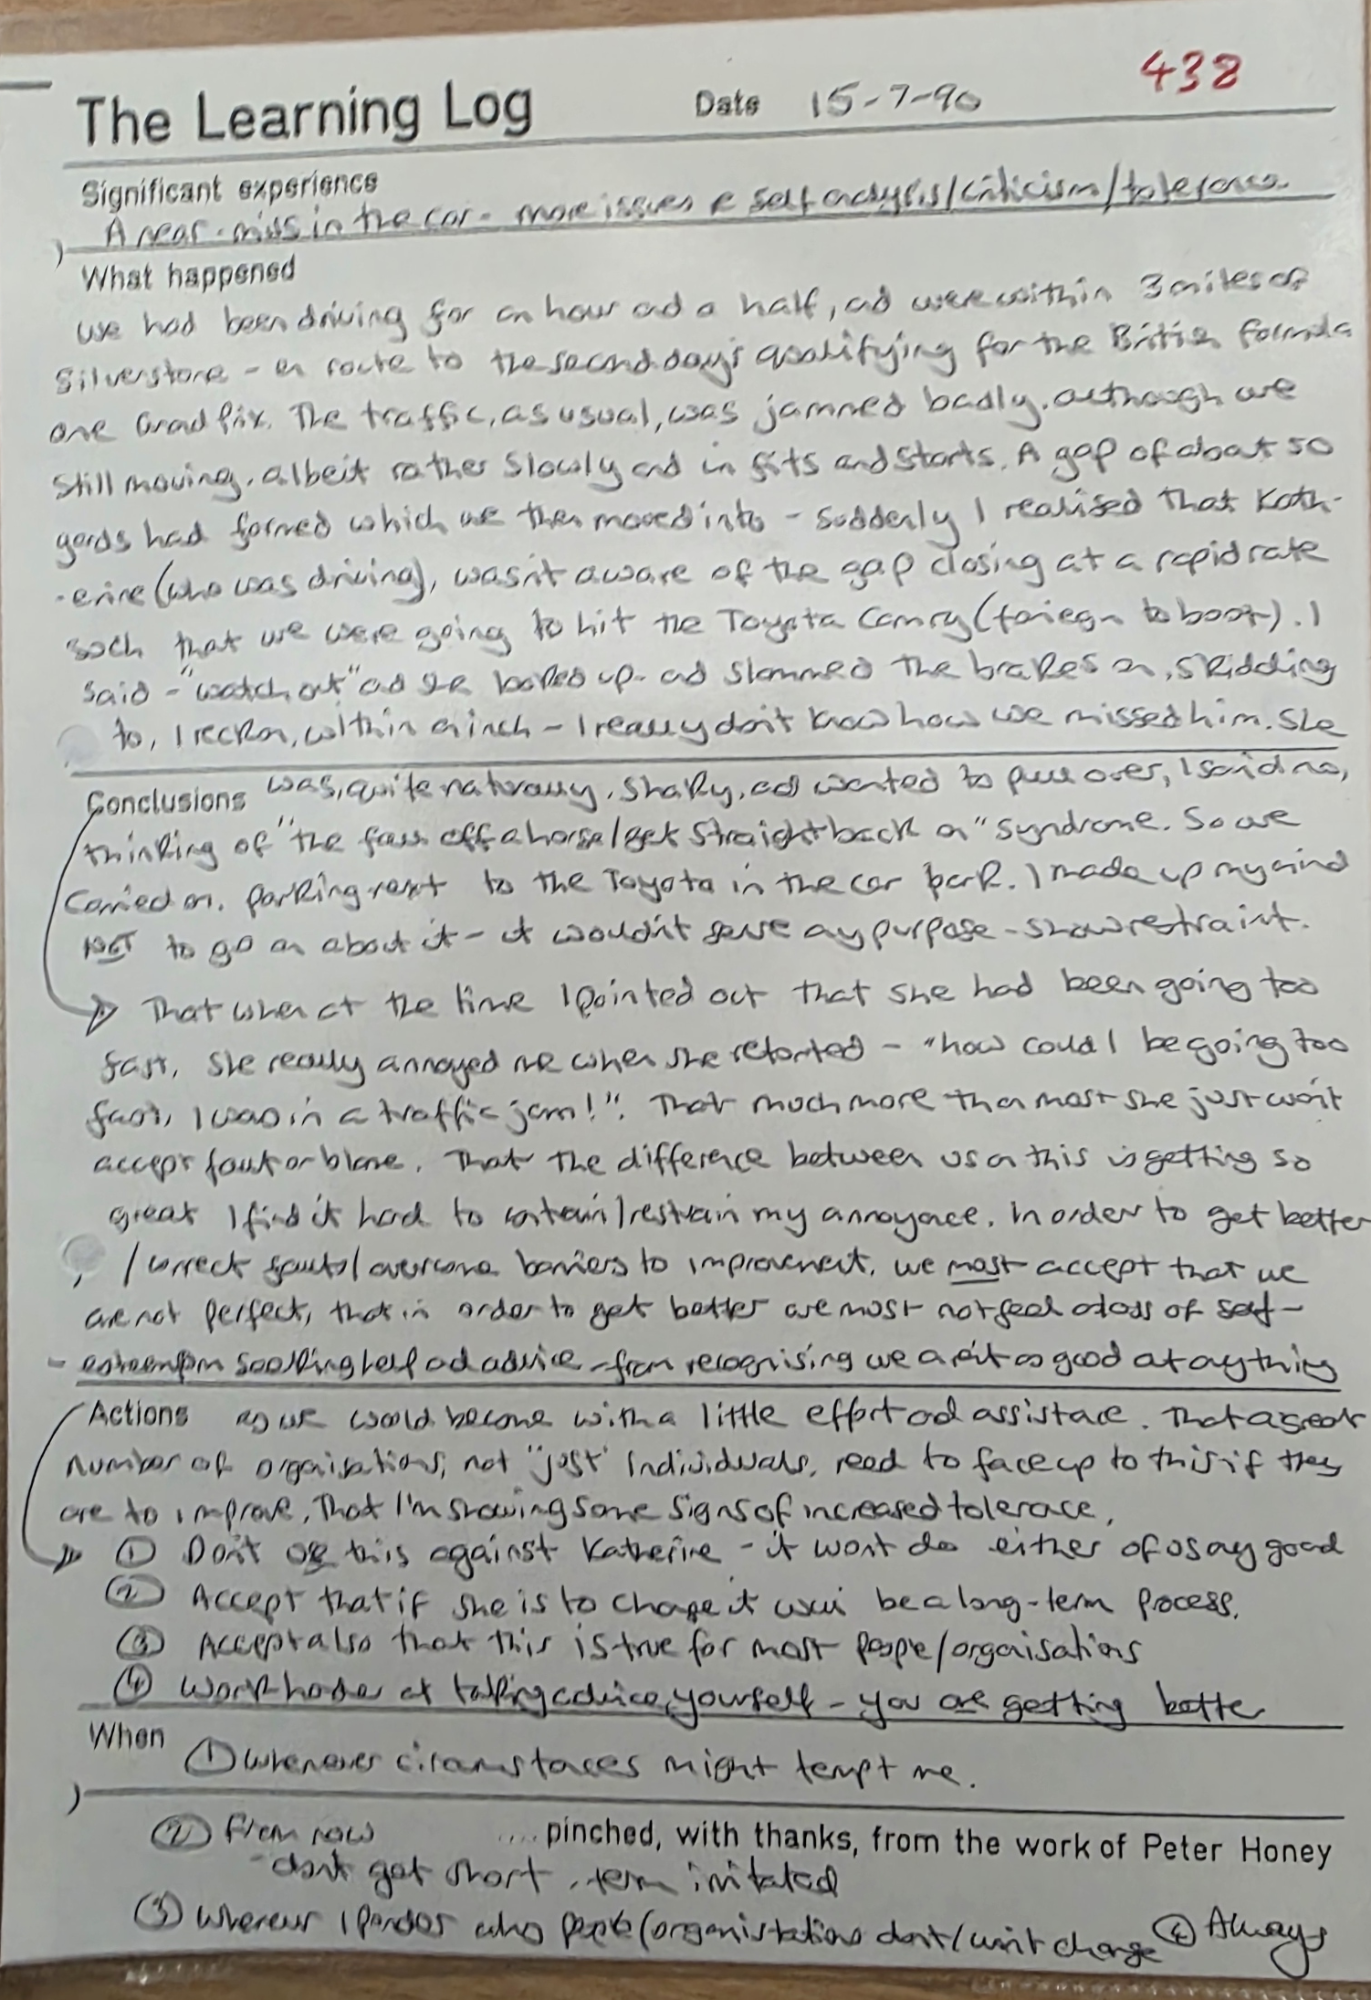 438
The Learning Log
Date 15-7-90
Significant experience
A near-miss in the car - more issues re self analysis/criticism/tolerance
What happened
We had been driving for an hour and a half, and were within 3 miles of
Silverstone - en route to the second day's qualifying for the British Formula
one Grand Prix. The traffic, as usual, was jammed badly, although we
still moving, albeit rather slowly and in fits and starts. A gap of about 50
yards had formed which we then moved into - suddenly I realised that Kath-
-erine (who was driving), wasn't aware of the gap closing at a rapid rate
such that we were going to hit the Toyota Camry (foriegn to boot). I
said - "watch out" and she looked up and slammed the brakes on, skidding
to, I reckon, within an inch - I really don't know how we missed him. She
Conclusions was, quite naturally, shaky, and wanted to pull over, I said no,
thinking of "the fall off a horse/get straight back on" syndrome. So we
carried on, parking next to the Toyota in the car park. I made up my mind
NOT to go on about it - it wouldn't serve any purpose - show restraint.
That when at the time I pointed out that she had been going too
fast, she really annoyed me when she retorted - "how could I be going too
fast, I was in a traffic jam!". That much more than most she just won't
accept fault or blame. That the difference between us on this is getting so
great I find it hard to contain/restrain my annoyance. In order to get better
/correct faults/overcome barriers to improvement, we must accept that we
are not perfect, that in order to get better we must not feel a loss of self-
-esteem from seeking help and advice - from recognising we aren't as good at anything
Actions as we would become with a little effort and assistance. That a great
number of organisations, not "just" individuals, need to face up to this if they
are to improve. That I'm showing some signs of increased tolerance.
① Don't use this against Katherine - it won't do either of us any good
② Accept that if she is to change it will be a long-term process.
③ Accept also that this is true for most people/organisations
④ Work harder at taking advice yourself - you are getting better
When ① Whenever circumstances might tempt me.
② From now
.... pinched, with thanks, from the work of Peter Honey
- don't get short-term irritated
③ Whenever I ponder who people/organistations don't/won't change ④ Always